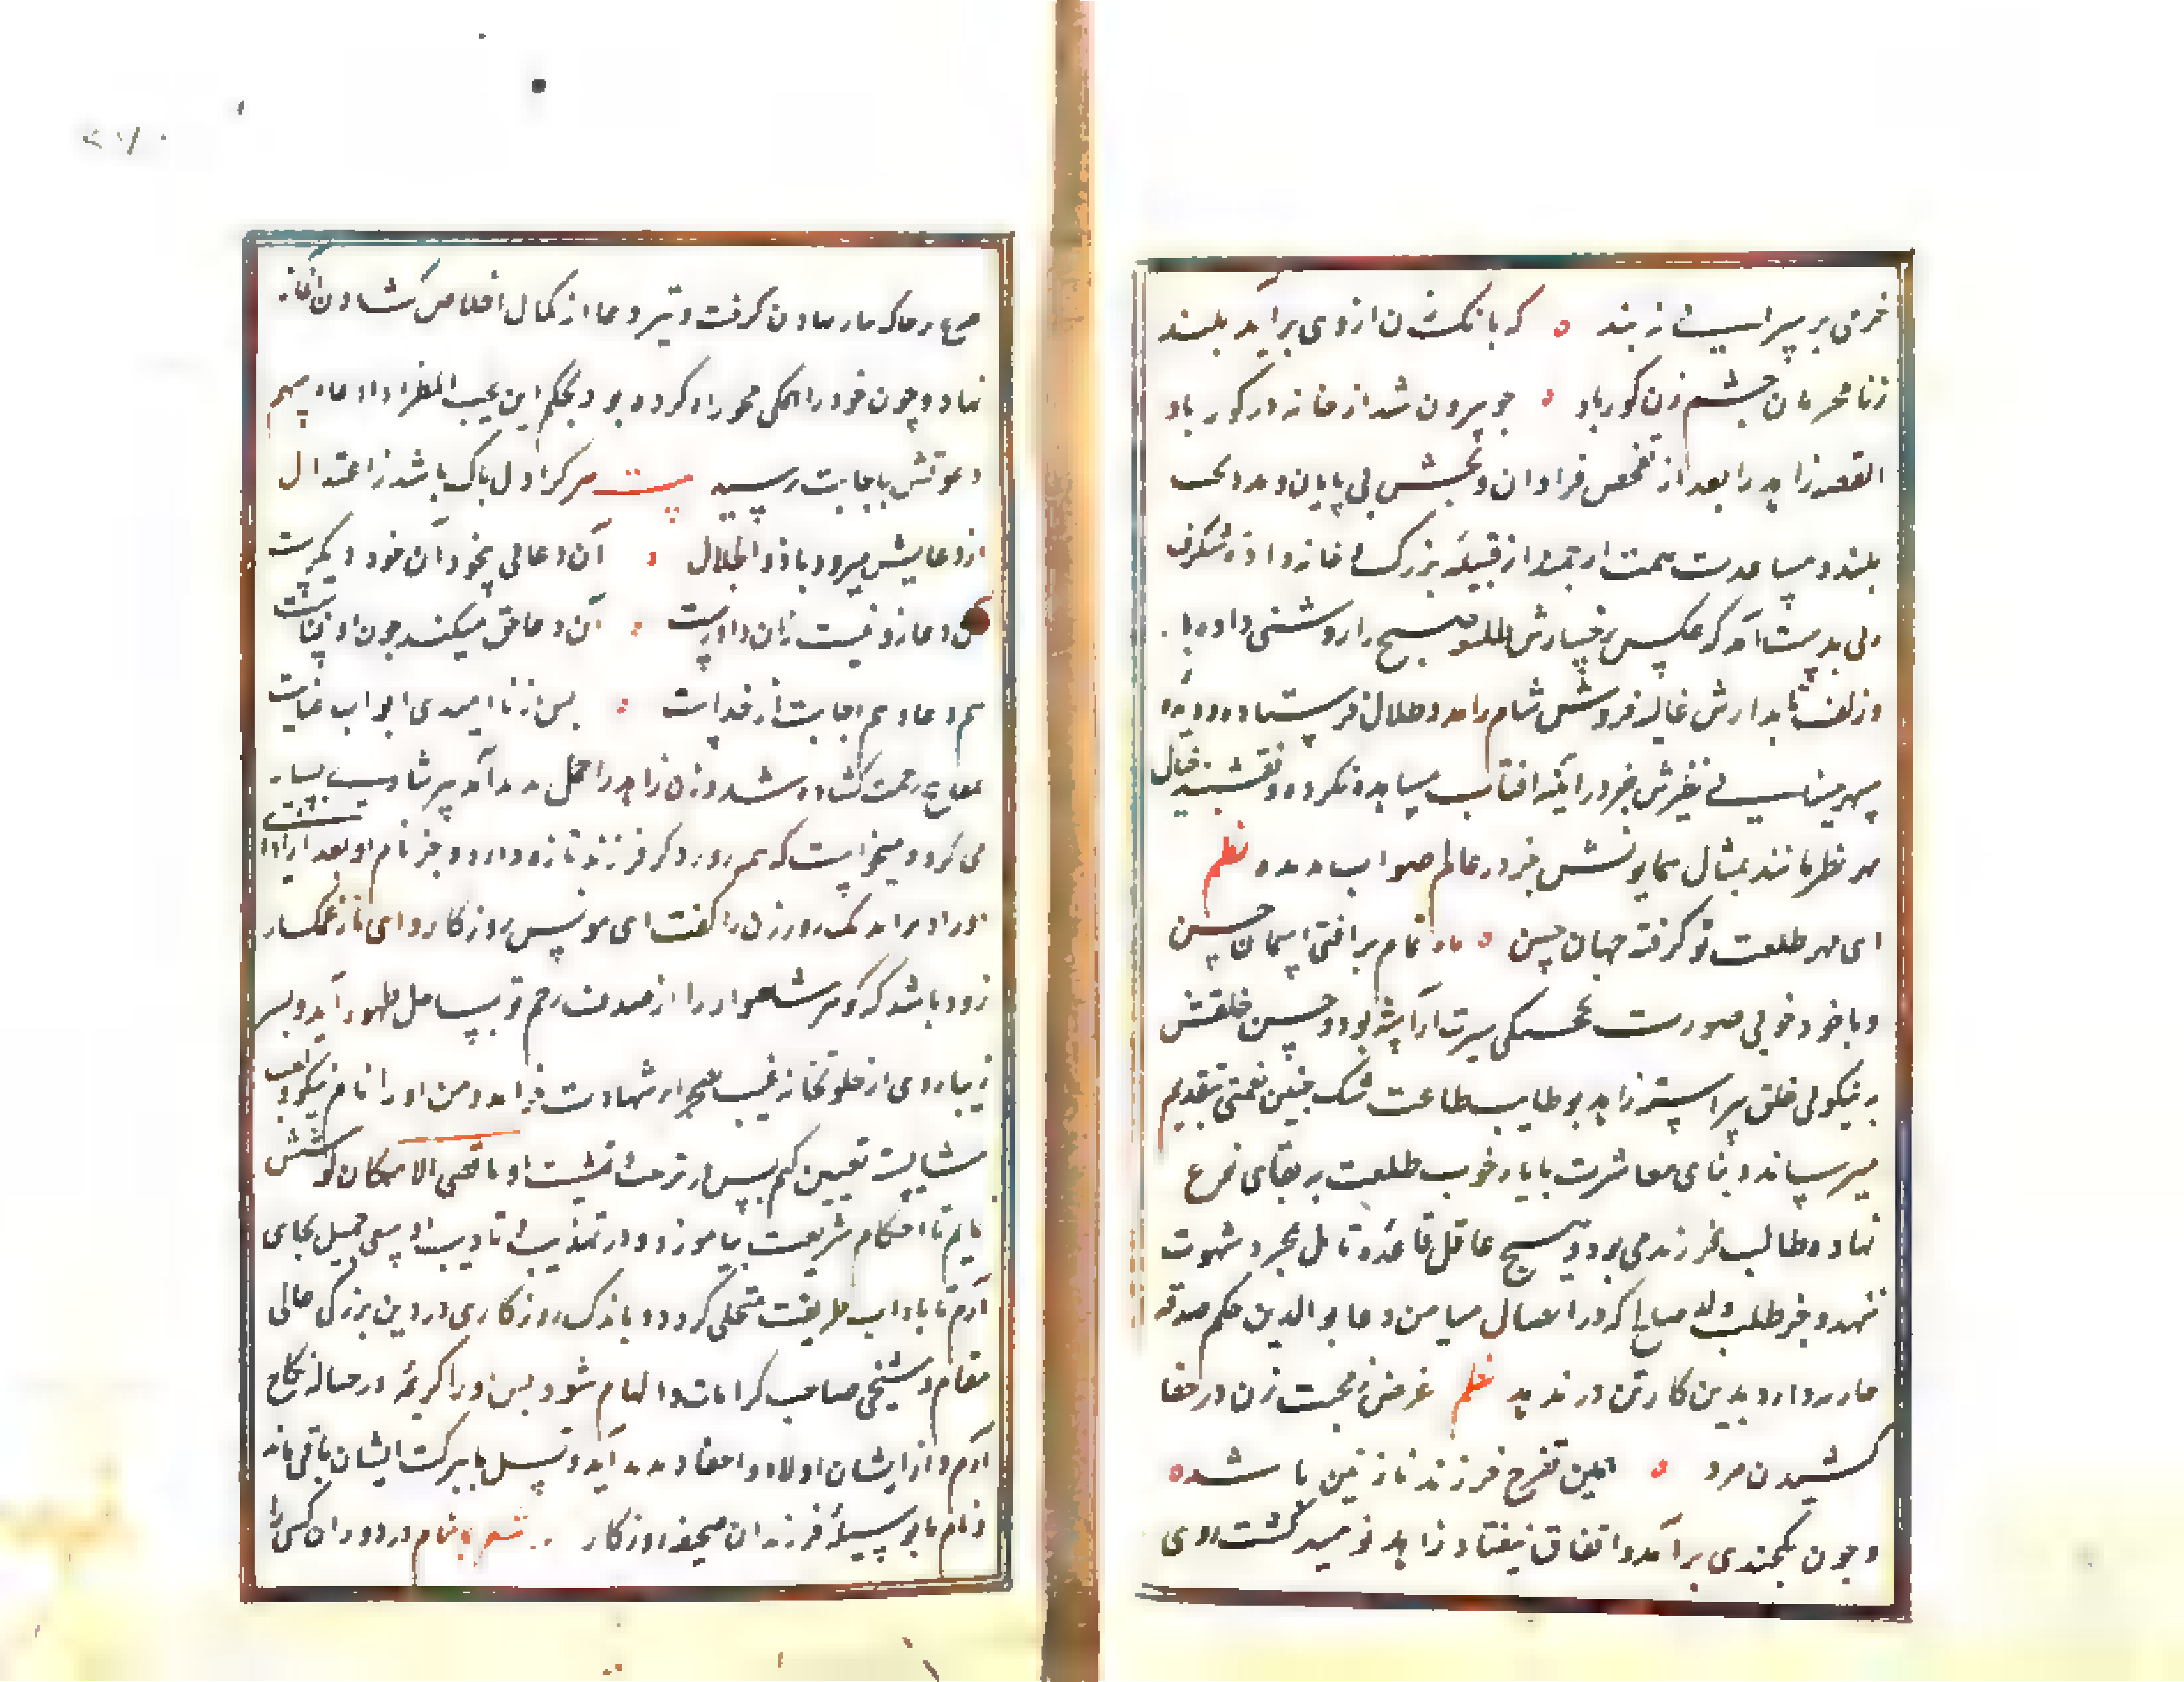 خری بر سرایی نه بند ه که بانگ زن از وی برآید بلند
ز نامحرمان چشم زن کور باد ه چو بیرون شد از خانه در گور باد
القصه زاهد را بعد از تفحص فراوان و تجسس بی پایان و مدد بخت
بلند و مساعدت همت ارجمند از قبیله بزرگ و خانواده شگرف
زنی بدست آمد که عکس رخسارش طلیعه صبح را روشنی داده بود
و زلف تابدارش غالیه فروش شام را مدد ظلال فرستاده و دیده
سپهر مینایی نظیرش جز در آینه آفتاب مشاهده نکرده و نقشبند خیال
مر نظر مانند تمثال همایونش جز در عالم خواب ندیده نظم
ای مهر طلعت تو گرفته جهان حسن ه ماه تمام برافق آسمان حسن
و با خود خوبی صورت سیرت آراسته بود و حسن خلقتش
به نیکوئی خلق پیراسته زاهد بوظایف طاعت شکر چنین نعمتی بتقدیم
میرسانید و بنای معاشرت با یار خوب طلعت بر بقای فرع
نهاده و طالب فرزند می بود و هیچ عاقل قاعده تاهل بمجرد شهوت
ننهد و جز طلب ولد صالح که در ایصال میامن دعا بوالدین حکم صدقه
جاریه دارد بدین کار تن در ندهد نظم غرض ز صحبت زن در جفا
کشیدن مرد ه همین تفرج فرزند نازنین باشد ه
و چون یکچندی برآمد و اتفاق نیفتاد زاهد نومید گشت روی
گرفت و تیر دعا از کمال اخلاص گشادن آغاز
نهاد و چون خود را همگی محو راه کرده بود بحکم امن یجیب المضطر اذا دعاه سهم
دعوتش باجابت رسید بیت هر کرا دل پاک باشد ز اعتدال
از دعایش میرود تا ذو الجلال ه آن دعای بیخودان خود دیگرست
آن دعا زو نیست زان داورست ه آن دعا حق میکند چون او فناست
هم دعا و هم اجابت از خداست ه پس از ناامیدی ابواب عنایت
مفاتیح رحمت گشاده شد و زن زاهد را حمل پدید آمد پیر شادی بسیار
می کرد و میخواست که همه روز ذکر فرزند تازه دارد و جز نام او بعد از ادای
اوراد نراند یک روز زن را گفت ای مونس روزگار و ای یار غمگسار
زود باشد که گوهر شاهوار از صدف رحم تو بساحل ظهور آید و پسر
زیباروی از خلوتخانه غیب بصحرای شهادت خرامد و من او را نام نیکو و لقب
شایسته تعیین کنم پس در تربیت او باقصی الامکان کوشش
نمایم تا احکام شریعت بیاموزد و در تهذیب و تادیب او سعی جمیل بجای
آرم تا بآداب طریقت متحلی گردد و باندک روزگاری در دین بزرگی عالی
مقام و شیخی صاحب کرامات و الهام شود پس او را کریمه در حباله نکاح
آرم و از ایشان اولاد و احفاد پدید آید و نسل ما ببرکت ایشان باقی ماند
و نام ما بوسیله فرزندان صحیفه روزگار .. شعر نام در دوران کسی را